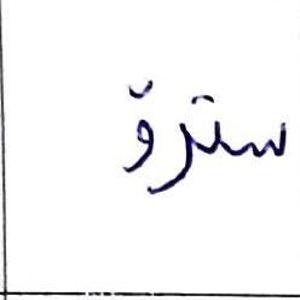 سترۆ